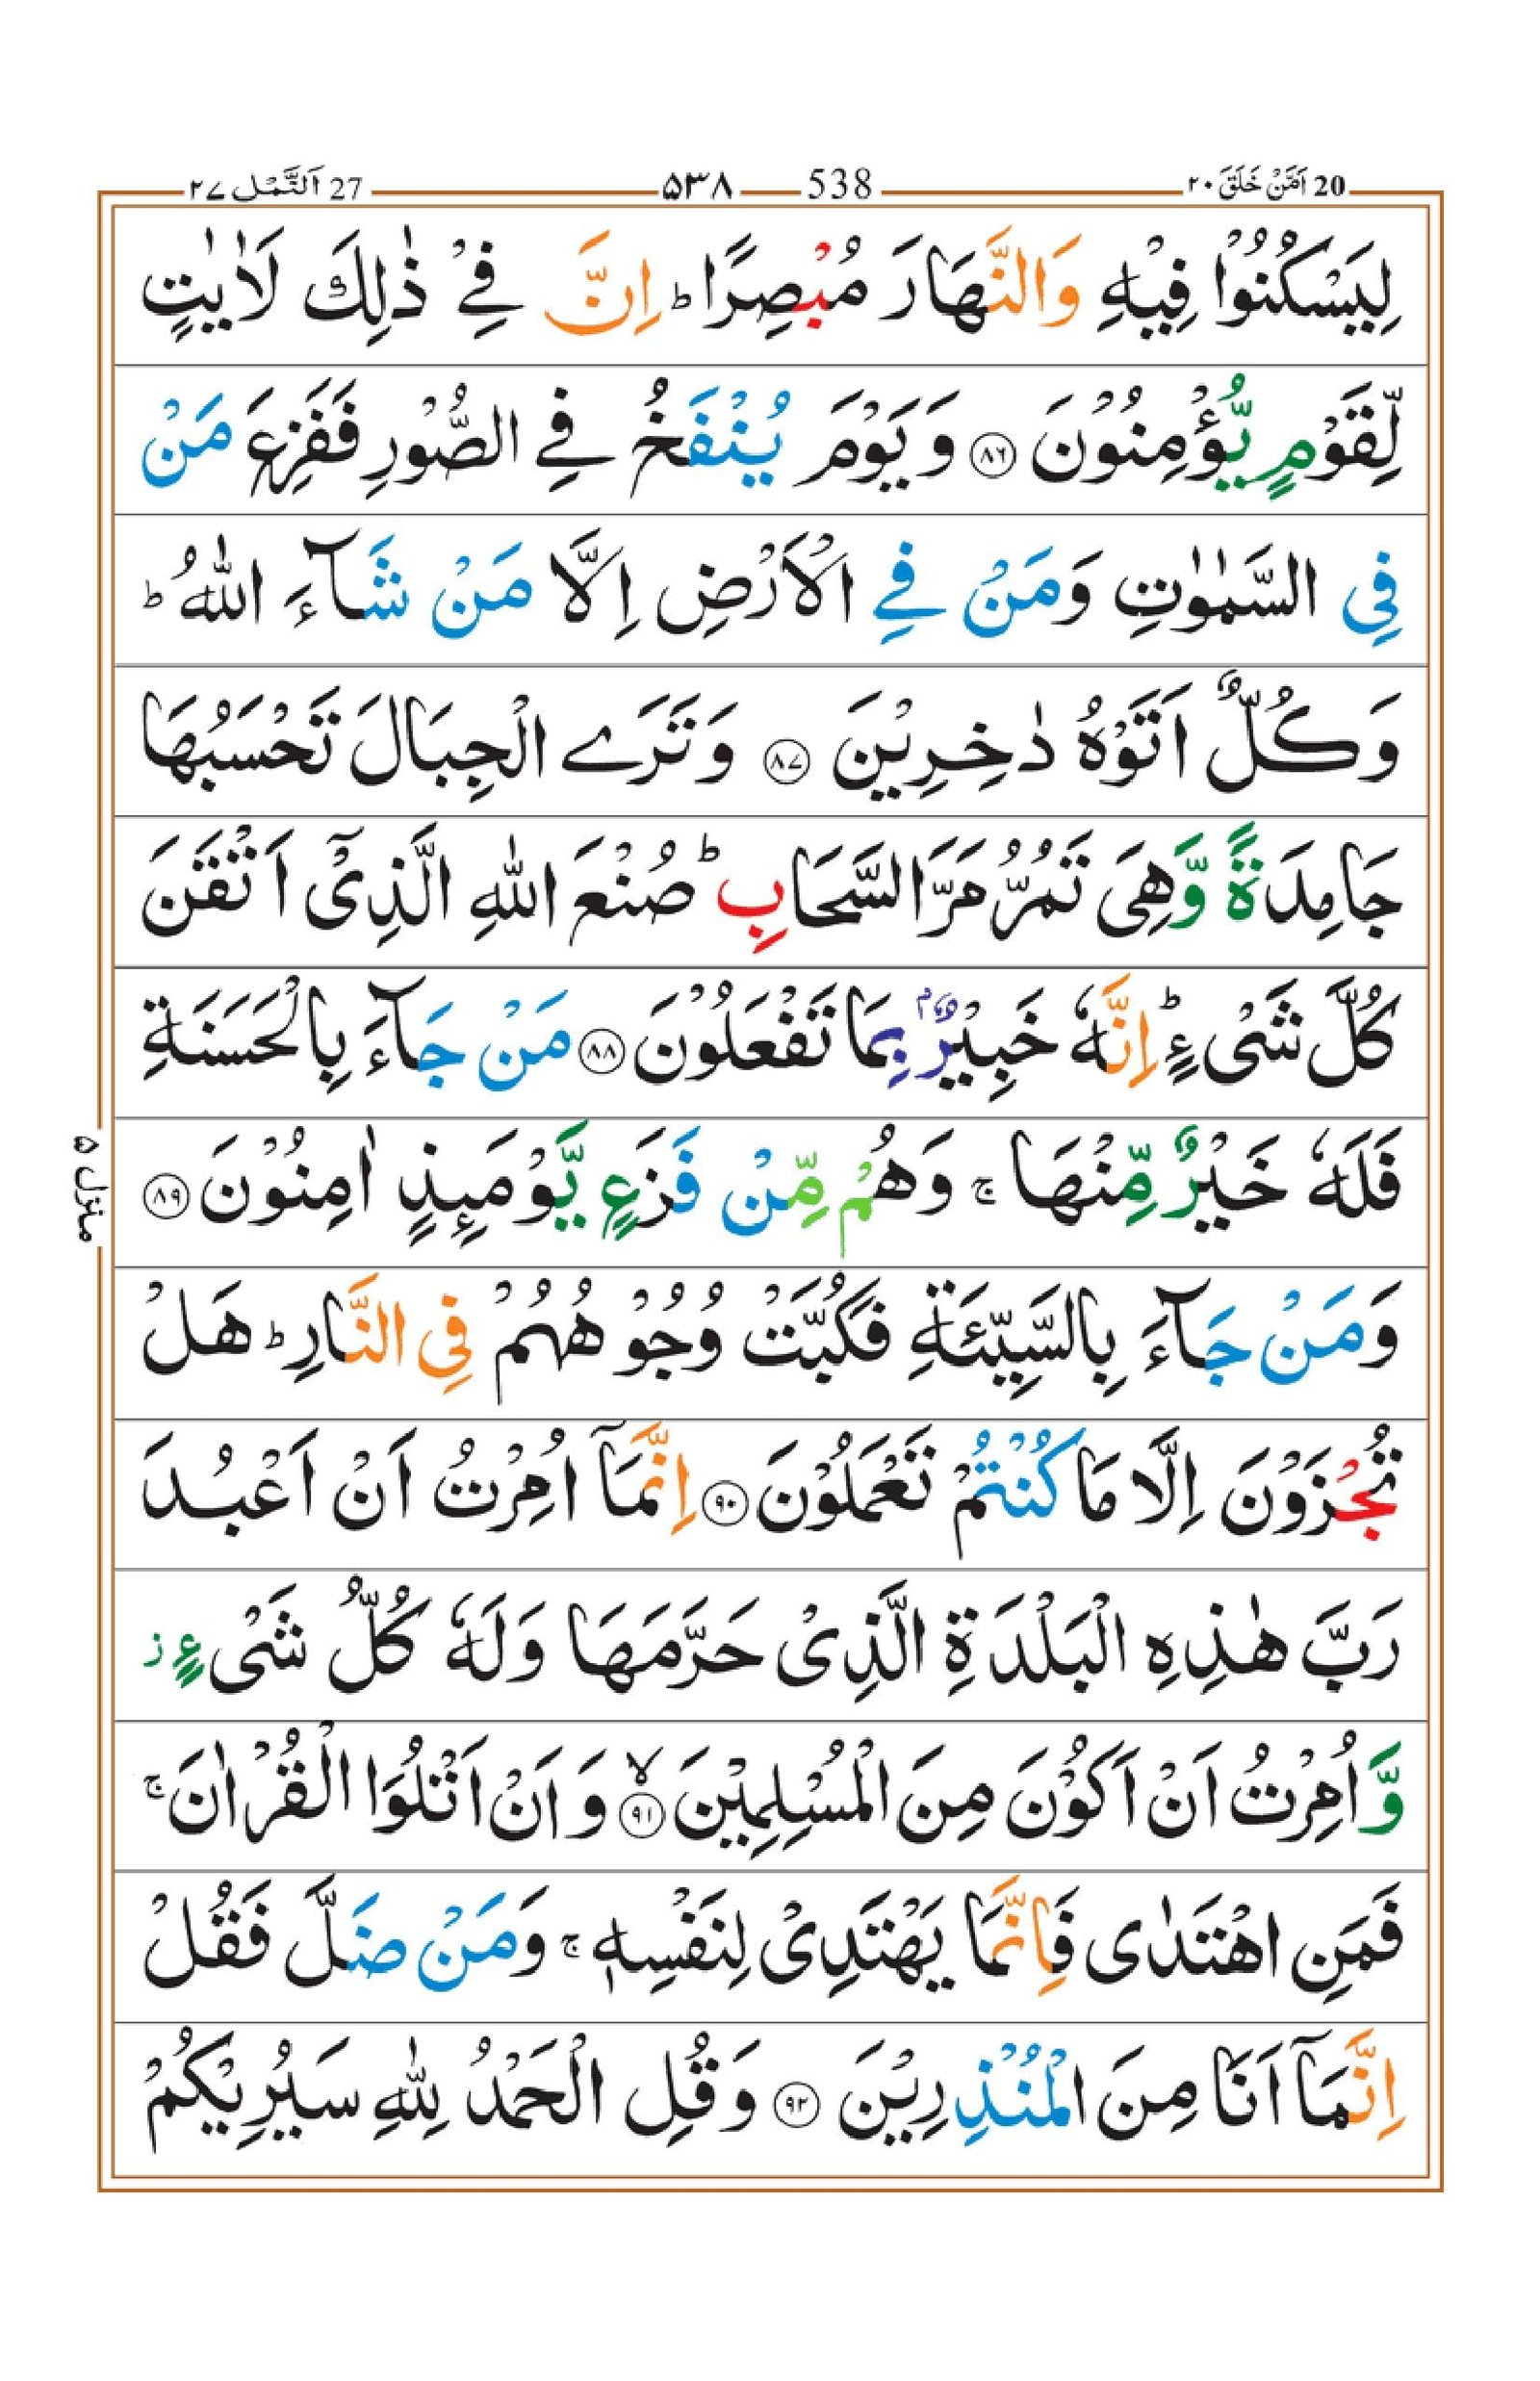 20 اَمَّنْ خَلَقَ ٢٠ 538 ۵۳۸ 27 اَلنَّمْل ٢٧
لِيَسْكُنُوْا فِيْهِ وَالنَّهَارَ مُبْصِرًا ؕ اِنَّ فِيْ ذٰلِكَ لَاٰيٰتٍ
لِّقَوْمٍ يُّؤْمِنُوْنَ ﴿٨٦﴾ وَيَوْمَ يُنْفَخُ فِے الصُّوْرِ فَفَزِعَ مَنْ
فِي السَّمٰوٰتِ وَمَنْ فِے الْاَرْضِ اِلَّا مَنْ شَآءَ اللّٰهُ ؕ
وَكُلٌّ اَتَوْهُ دٰخِرِيْنَ ﴿٨٧﴾ وَتَرَے الْجِبَالَ تَحْسَبُهَا
جَامِدَةً وَّهِيَ تَمُرُّ مَرَّ السَّحَابِ ؕ صُنْعَ اللّٰهِ الَّذِيْٓ اَتْقَنَ
كُلَّ شَيْءٍ ؕ اِنَّهٗ خَبِيْرٌۢ بِمَا تَفْعَلُوْنَ ﴿٨٨﴾ مَنْ جَآءَ بِالْحَسَنَةِ
فَلَهٗ خَيْرٌ مِّنْهَا ۚ وَهُمْ مِّنْ فَزَعٍ يَّوْمَىِٕذٍ اٰمِنُوْنَ ﴿٨٩﴾
وَمَنْ جَآءَ بِالسَّيِّئَةِ فَكُبَّتْ وُجُوْهُهُمْ فِي النَّارِ ؕ هَلْ
تُجْزَوْنَ اِلَّا مَا كُنْتُمْ تَعْمَلُوْنَ ﴿٩٠﴾ اِنَّمَآ اُمِرْتُ اَنْ اَعْبُدَ
رَبَّ هٰذِهِ الْبَلْدَةِ الَّذِيْ حَرَّمَهَا وَلَهٗ كُلُّ شَيْءٍ ز
وَّاُمِرْتُ اَنْ اَكُوْنَ مِنَ الْمُسْلِمِيْنَ ۙ﴿٩١﴾ وَاَنْ اَتْلُوَا الْقُرْاٰنَ ۚ
فَمَنِ اهْتَدٰى فَاِنَّمَا يَهْتَدِيْ لِنَفْسِهٖ ۚ وَمَنْ ضَلَّ فَقُلْ
اِنَّمَآ اَنَا مِنَ الْمُنْذِرِيْنَ ﴿٩٢﴾ وَقُلِ الْحَمْدُ لِلّٰهِ سَيُرِيْكُمْ
منزل ۵